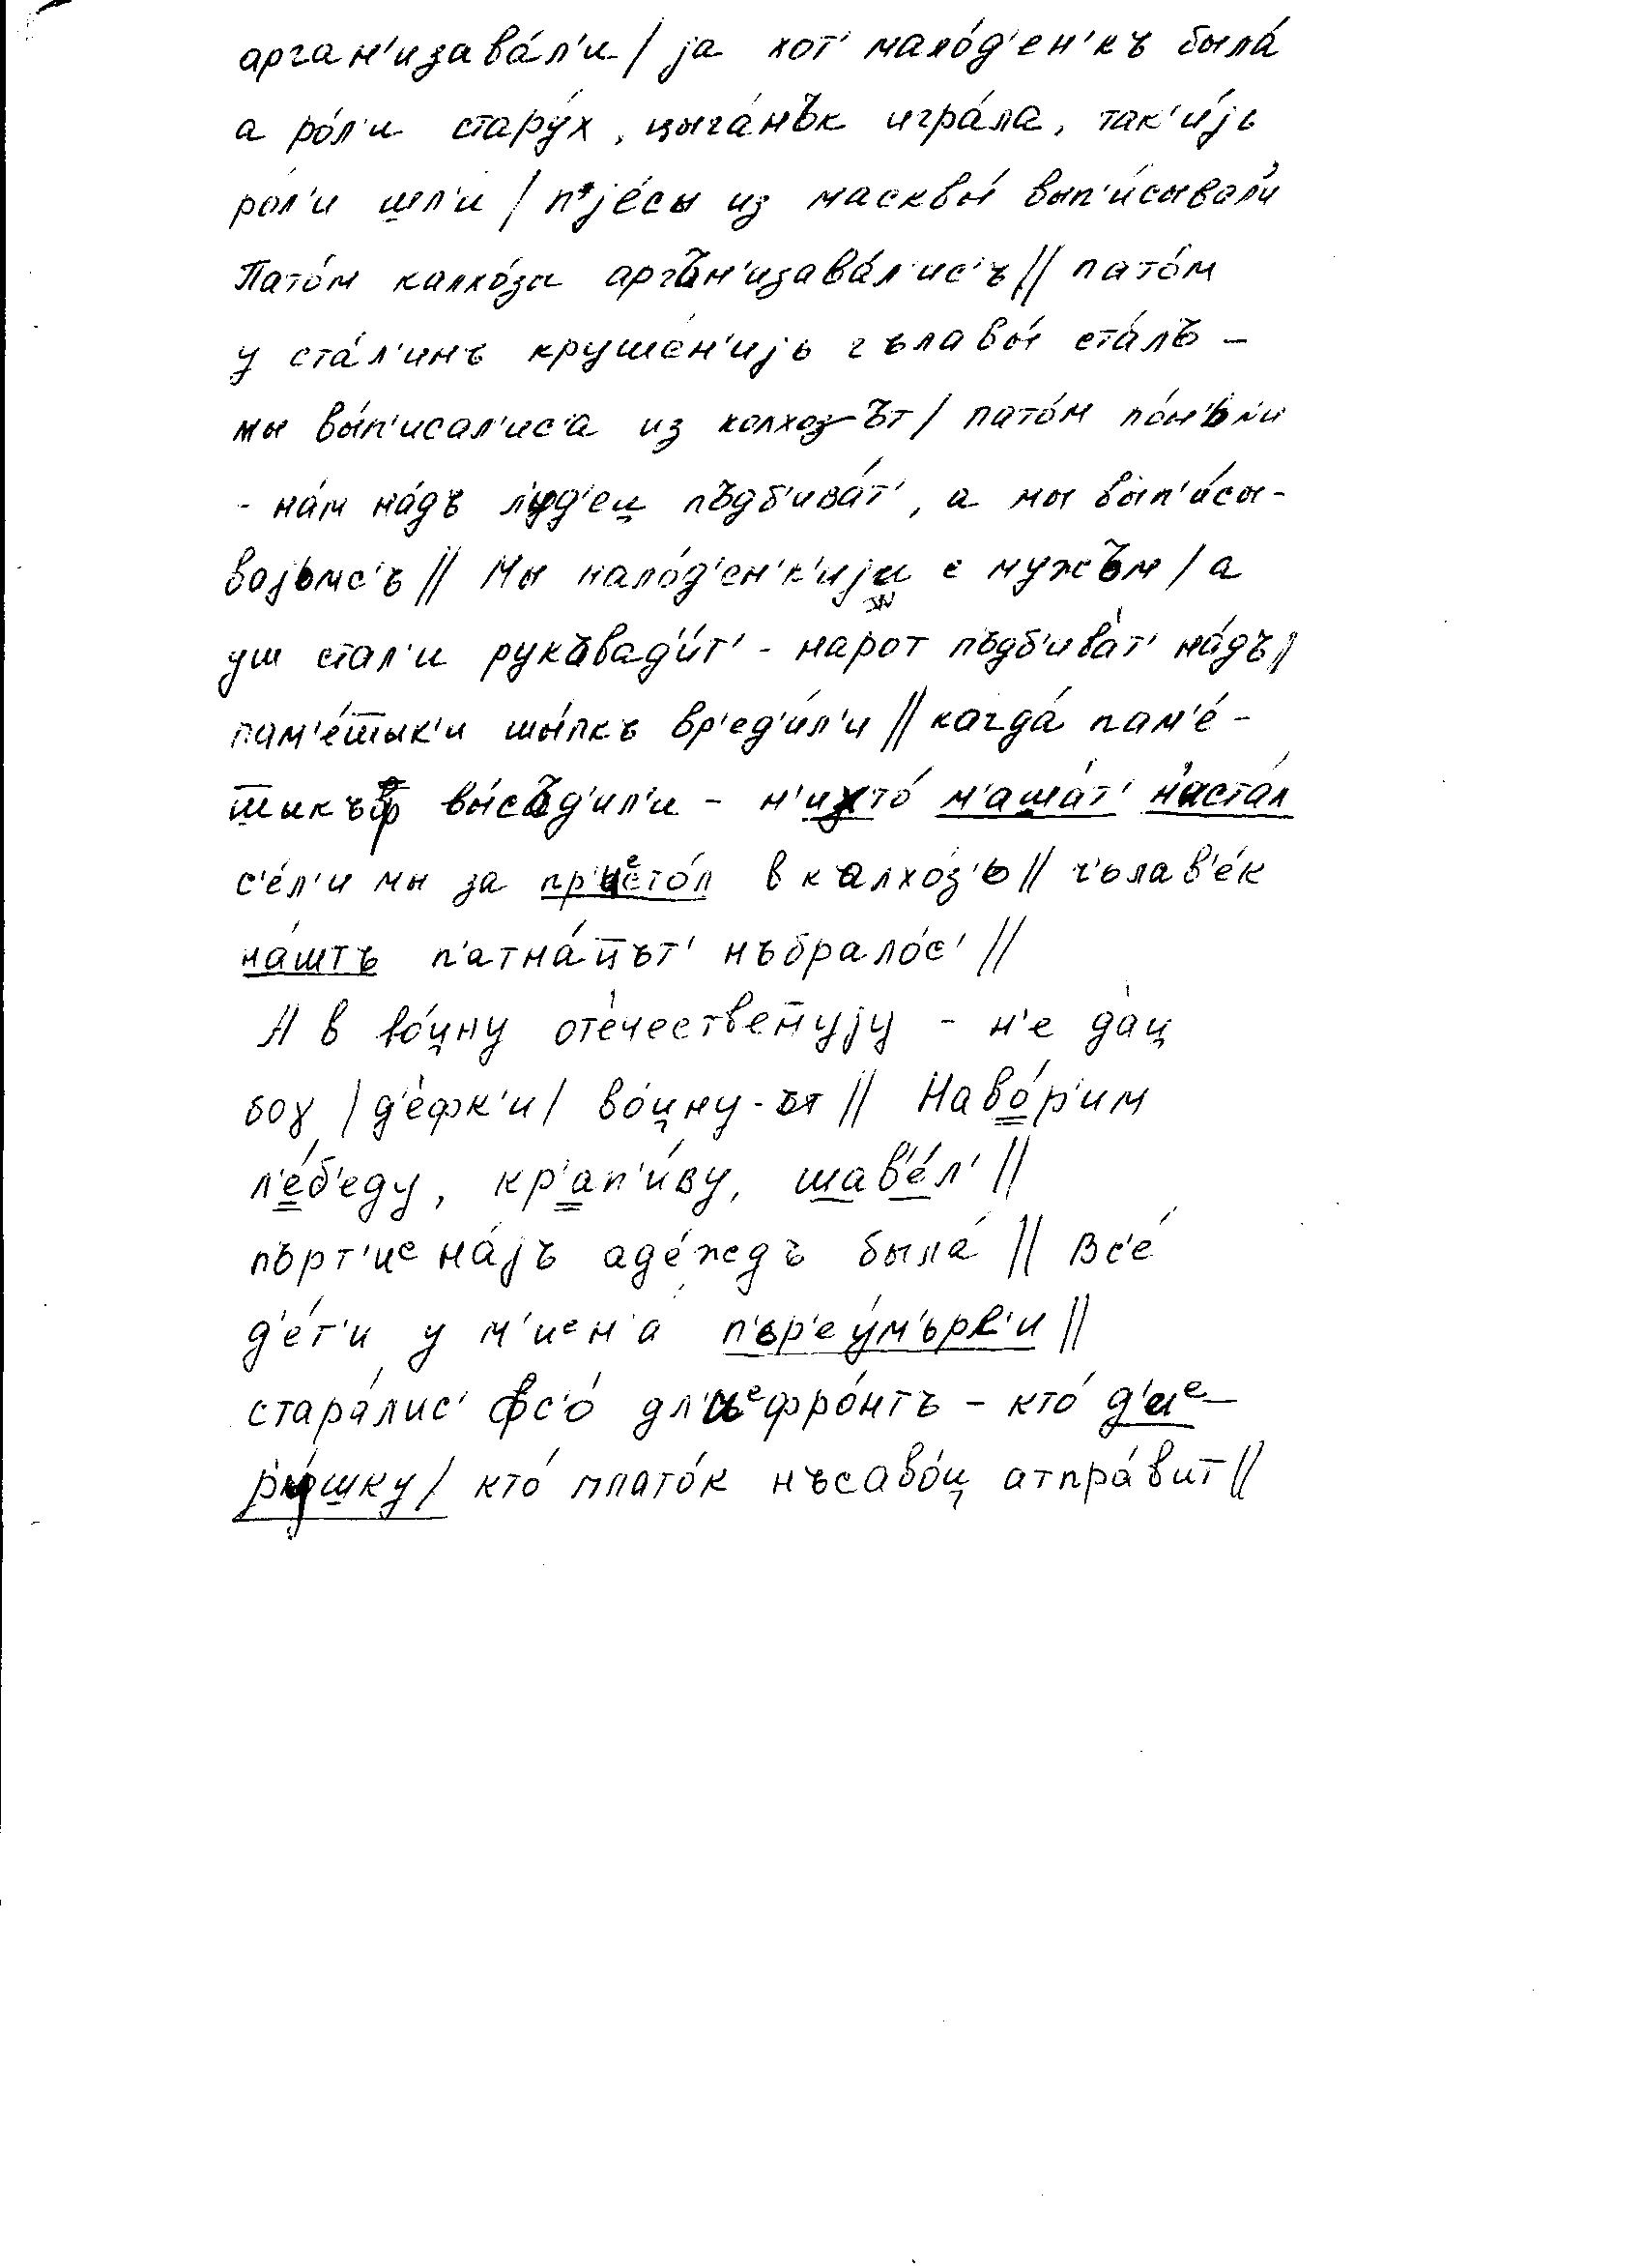 арган'изава́л'и / jа хот' мало́д'ен'къ была́
а ро́л'и стару́х, цыга́нък игра́ла, так'и́jь
рол'и шл'и / пjе́сы из масквы́ вып'и́сывал'и
Пато́м калхо́зы арган'изава́л'ис'ъ // пато́м
у ста́л'инъ круше́н'иjь гълавы́ ста́лъ –
мы вы́п'исал'ис'а из колхозът / пато́м по́н'ьли
- на́м на́дъ л'уд'еи̯ пъдб'ива́т', а мы вып'и́сы-
ваjьмс'ъ // Мы мало́д'ен'к'иjи с мужъм / а
уш стал'и рукъвад'и́т' - нарот пъдб'ива́т' на́дъ //
пам'е́т̅ык'и шы́пкъ вр'ед'и́л'и // када́ пам'е́-
т̅ыкъф вы́съд'ил'и – н'ихто́ м'аша́т' н'аста́л
с'е́л'и мы за пр'иᵉсто́л в калхо́з'ь // ч'ьлав'е́к
на́штъ п'атна́ц̅ът' нъбрало́с' //
А в во́и̯ну оте́чествен̅уjу – н'е даи̯
боγ / д'е́фк'и / во́и̯ну-ът // Наво́р'им
л'е́б'еду, кр'ап'и́ву, шав'е́л' //
пърт'иᵉна́jъ аде́ждъ была́ // Вс'е́
д'е́т'и у м'иᵉн'а п'ьр'еу́м'ьрл'и //
стара́лис' фс'о́ дл'иᵉфро́нтъ – кто́ д'иᵉ–
р'у́шку / кто́ плато́к нъсаво́и̯ атпра́вит //